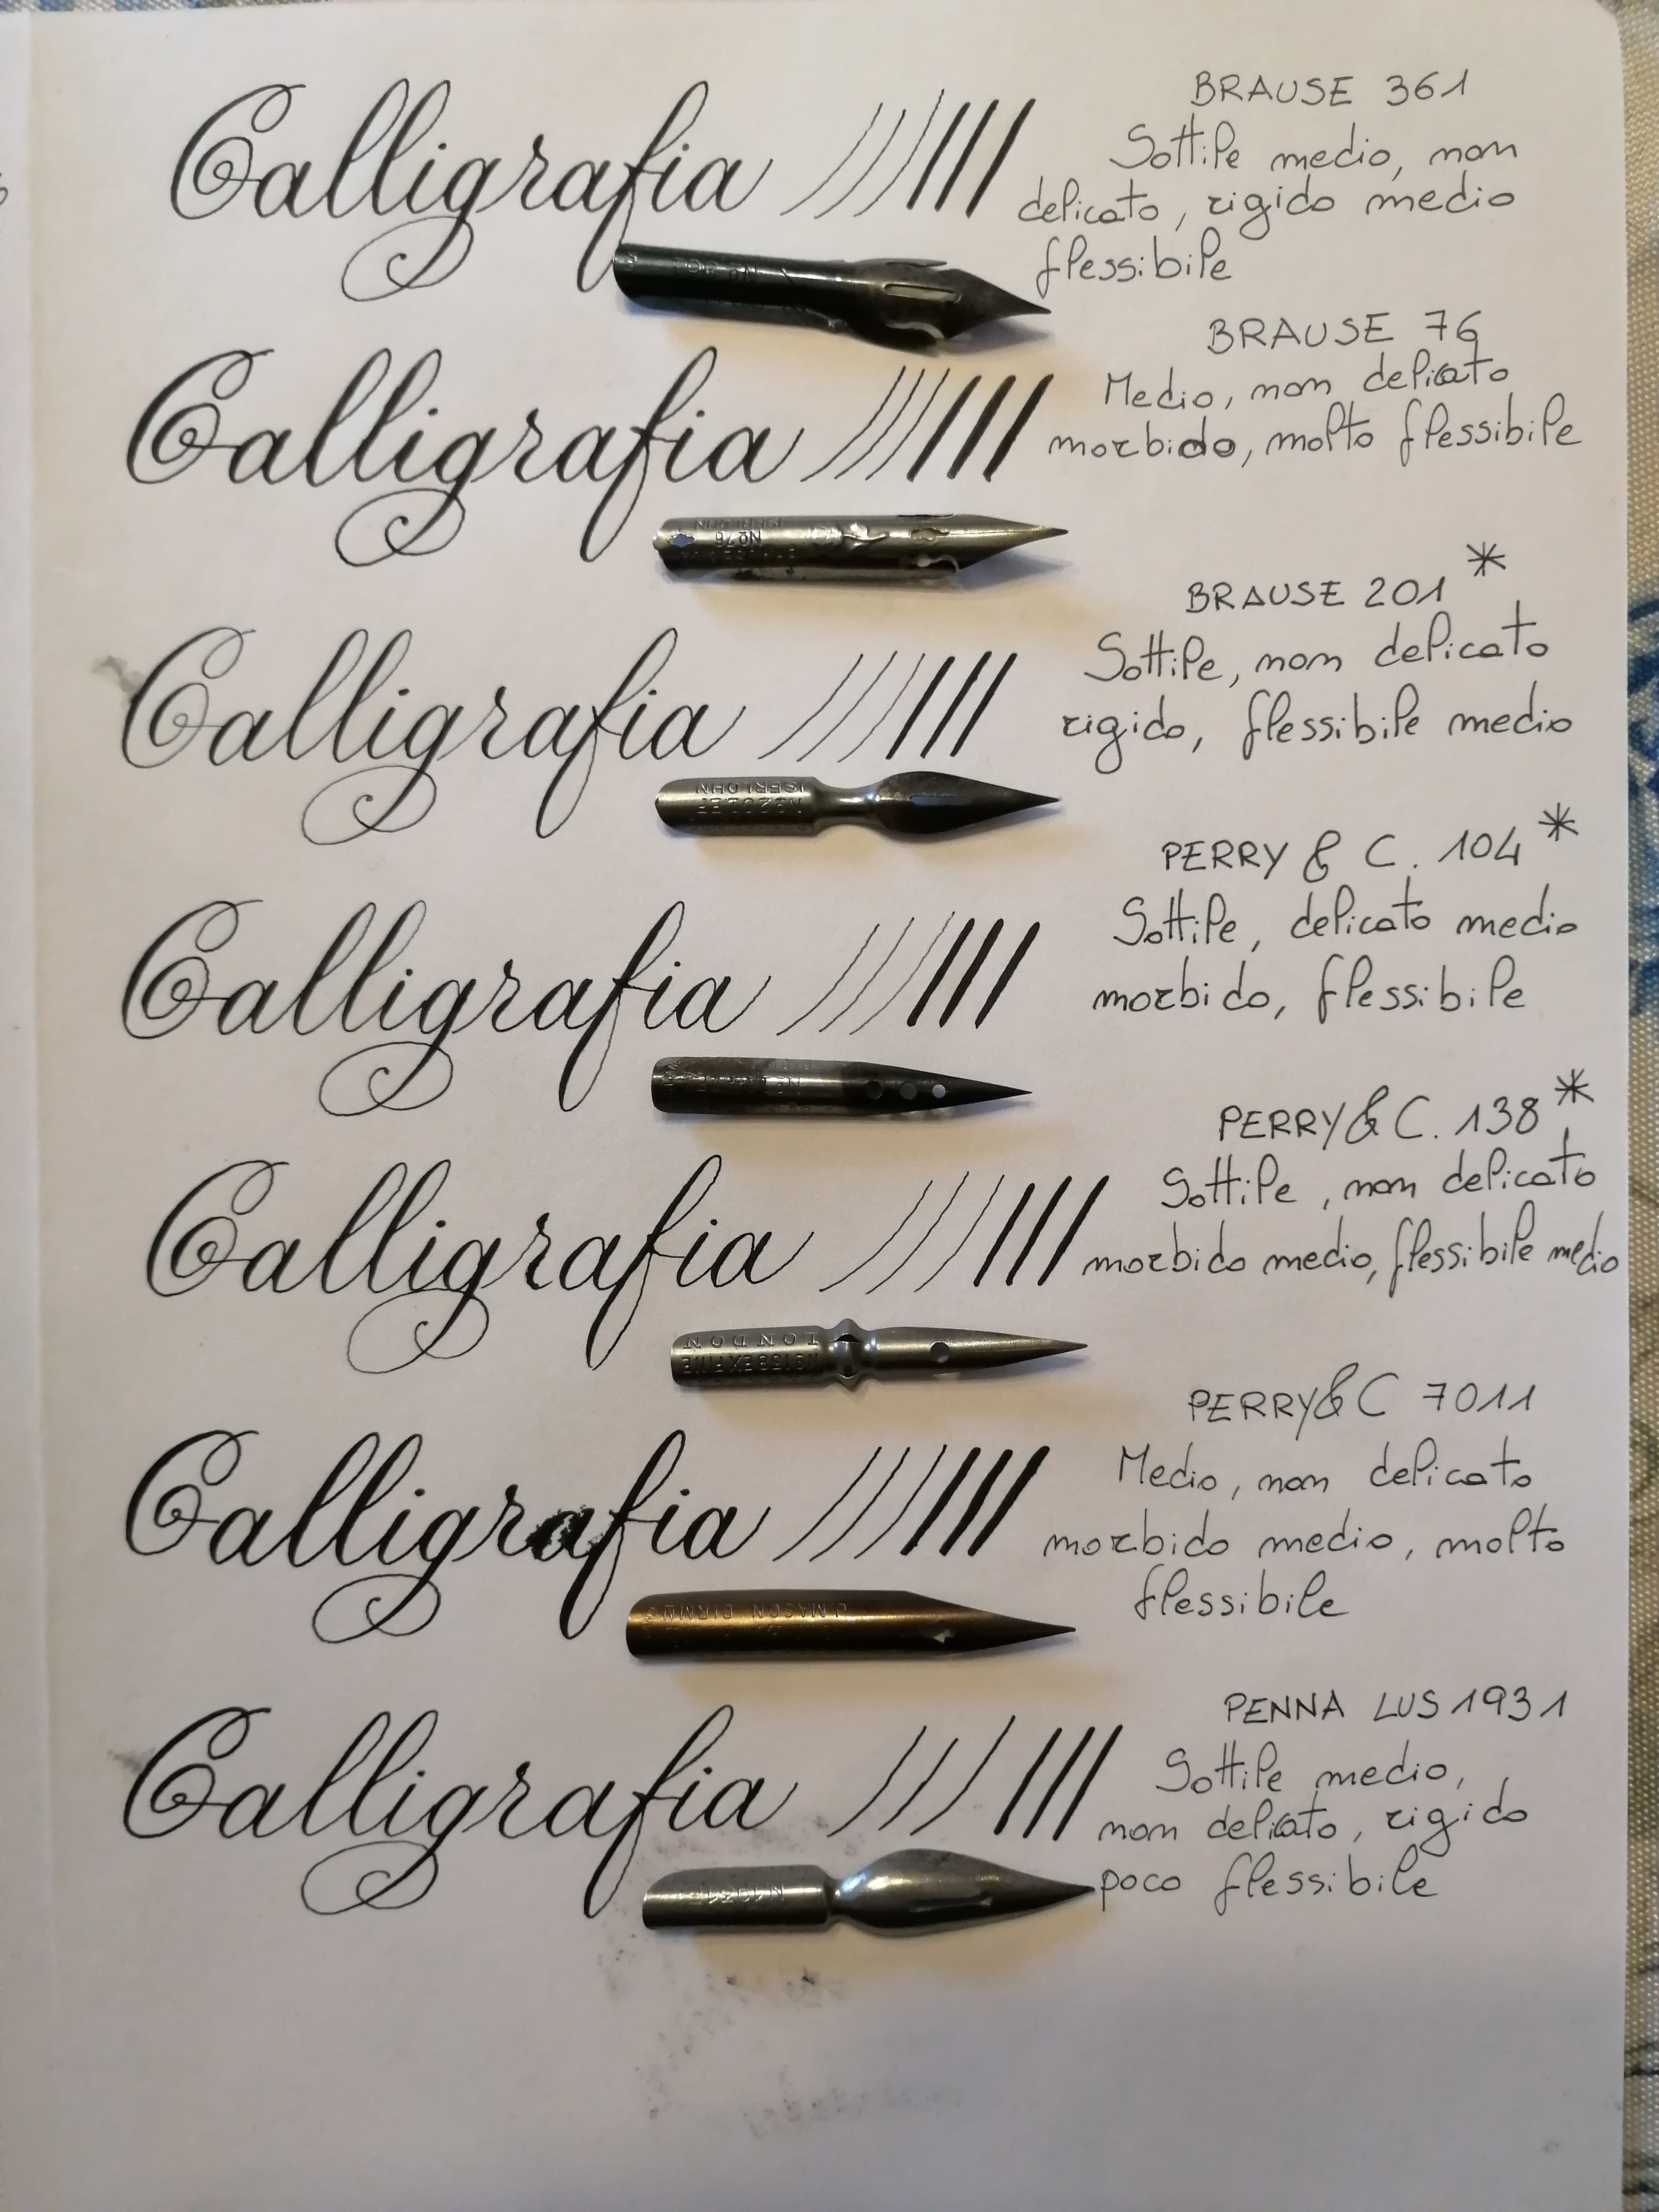 Calligrafia
BRAUSE 361
Sottile medio, non
delicato, rigido medio
flessibile
Calligrafia
BRAUSE 76
Medio, non delicato
morbido, molto flessibile
ISERLOHN
No 76
Calligrafia
BRAUSE 201 *
Sottile, non delicato
rigido, flessibile medio
ISERLOHN
Calligrafia
PERRY & C. 104 *
Sottile, delicato medio
morbido, flessibile
Calligrafia
PERRY & C. 138 *
Sottile, non delicato
morbido medio, flessibile medio
LONDON
No 138 EX FINE
Calligrafia
PERRY & C 7011
Medio, non delicato
morbido medio, molto
flessibile
J.MASON BIRM
Calligrafia
PENNA LUS 1931
Sottile medio,
non delicato, rigido
poco flessibile